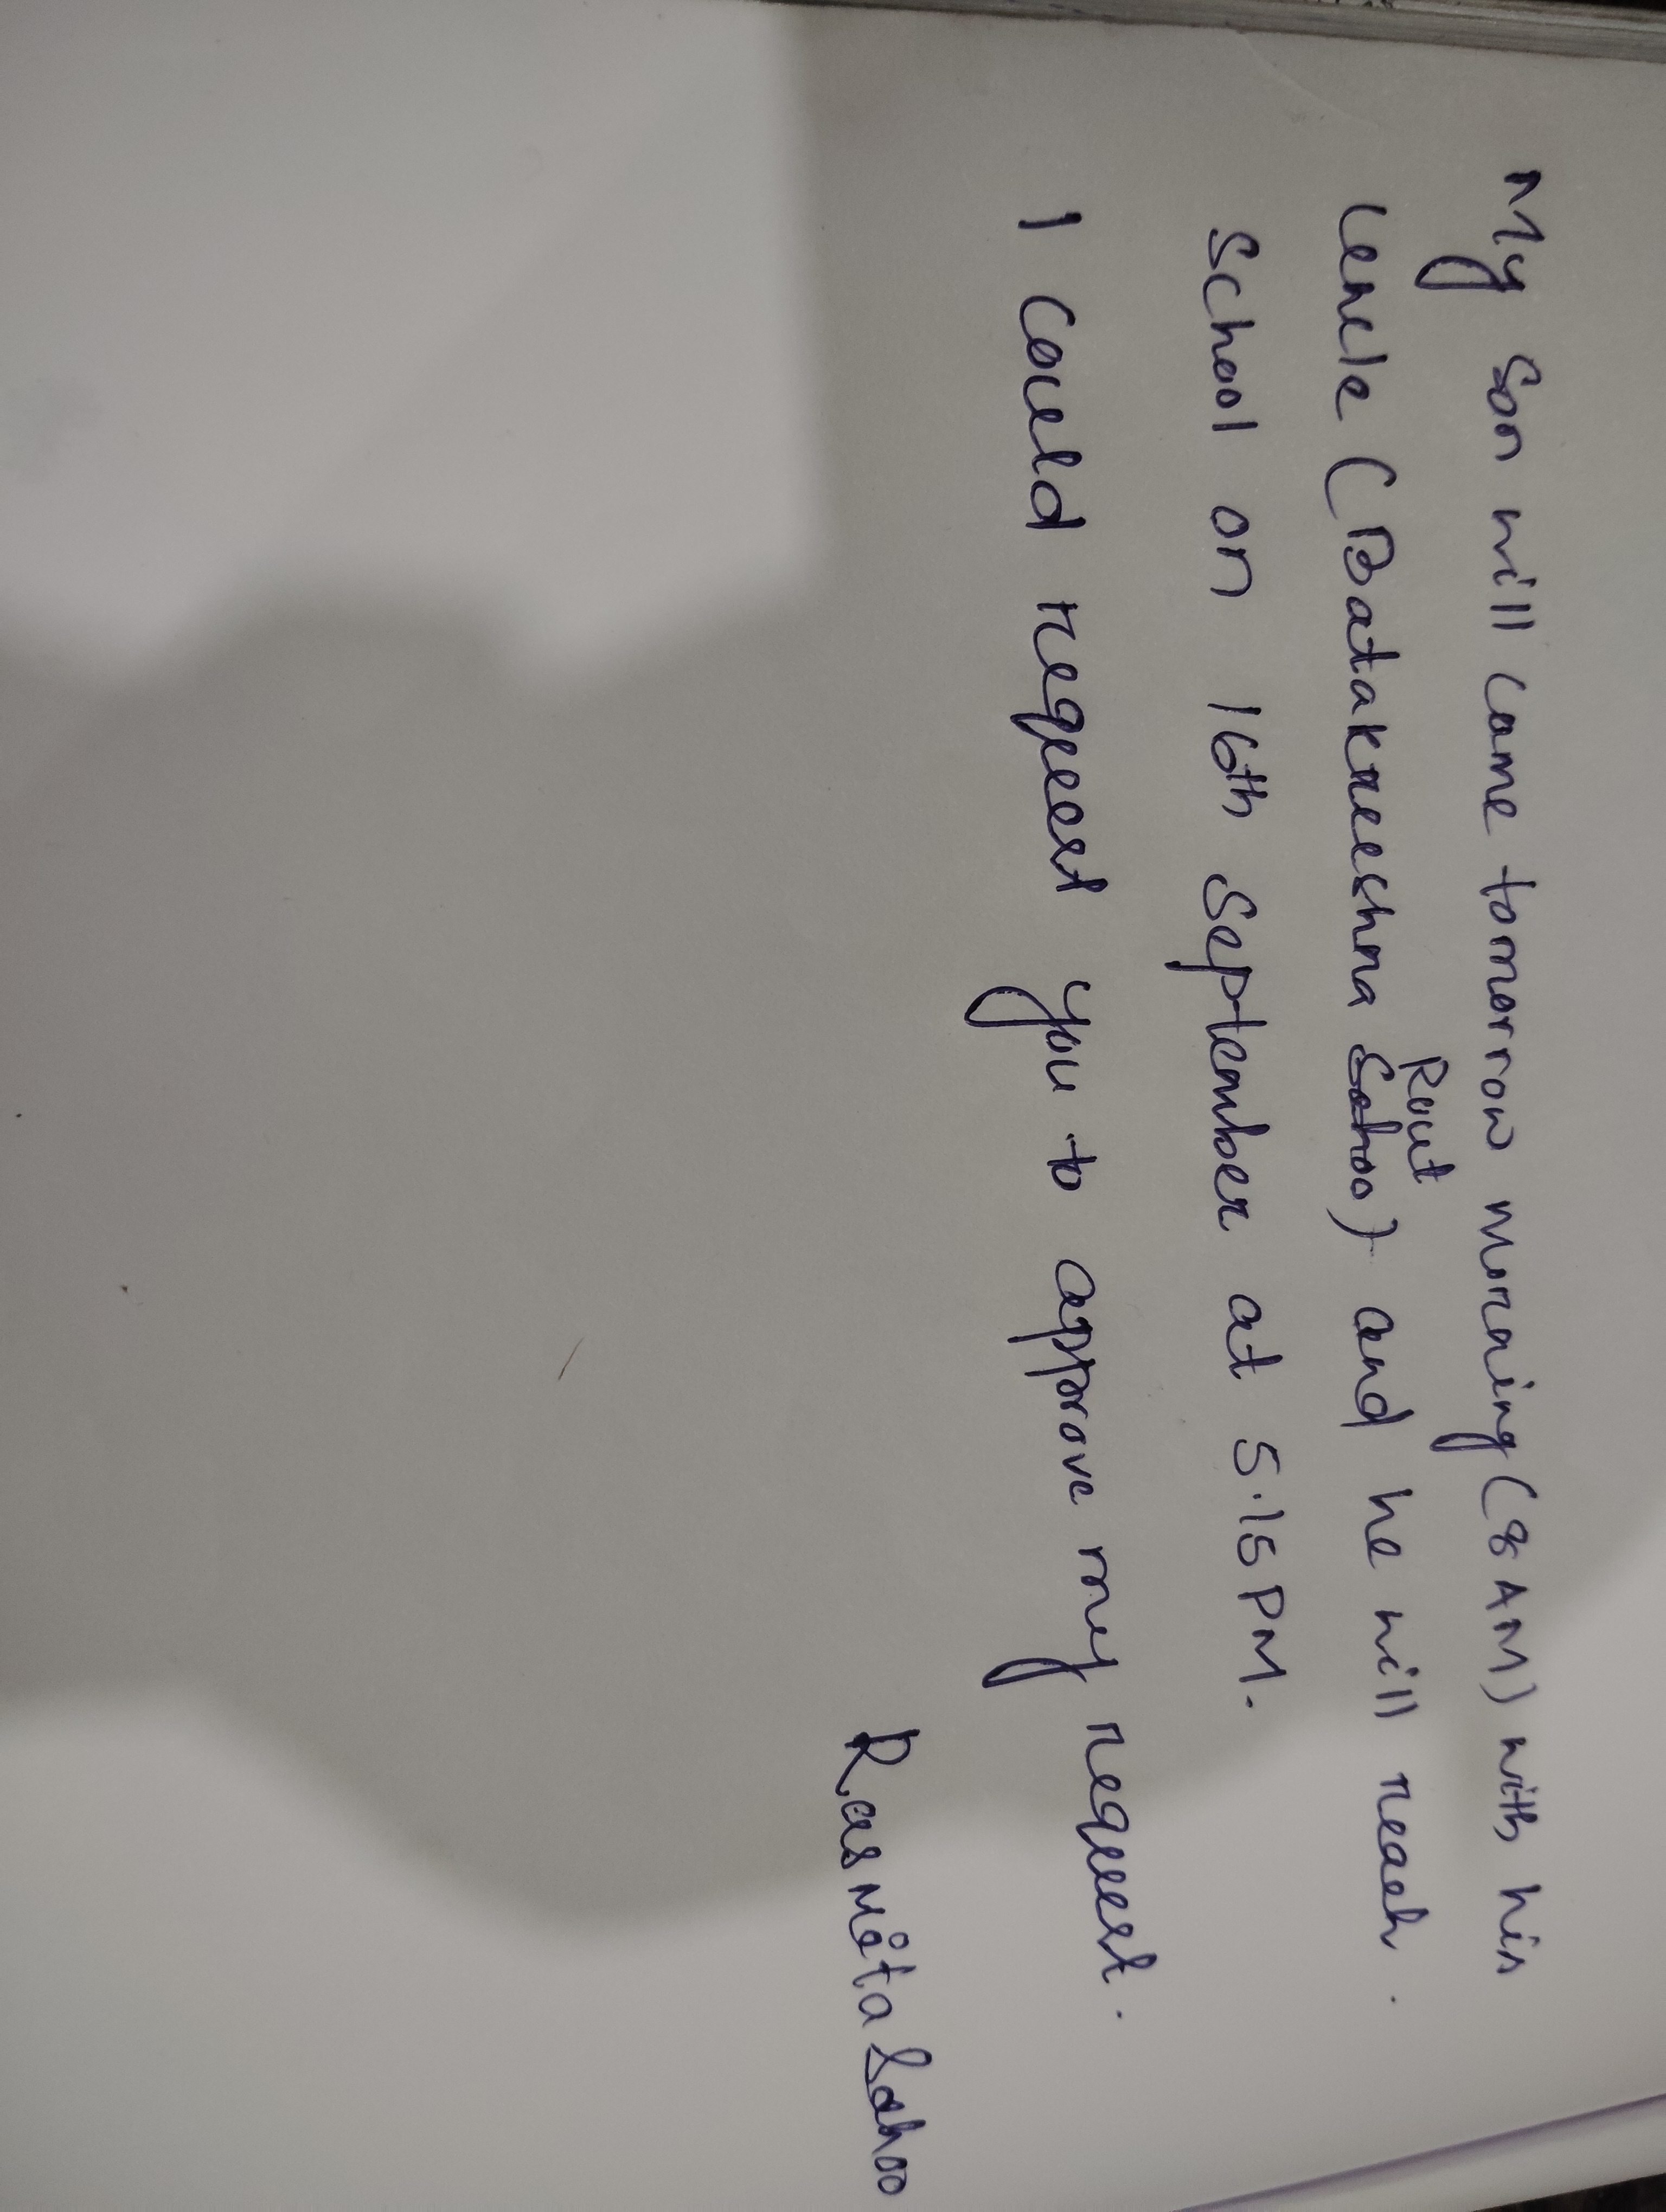 My son will came tomorrow morning (8 AM) with his
uncle (Batakrushna Rout) and he will reach.
School on 16th September at 5.15 PM.
I could request you to approve my request.
Rasmita Sahoo